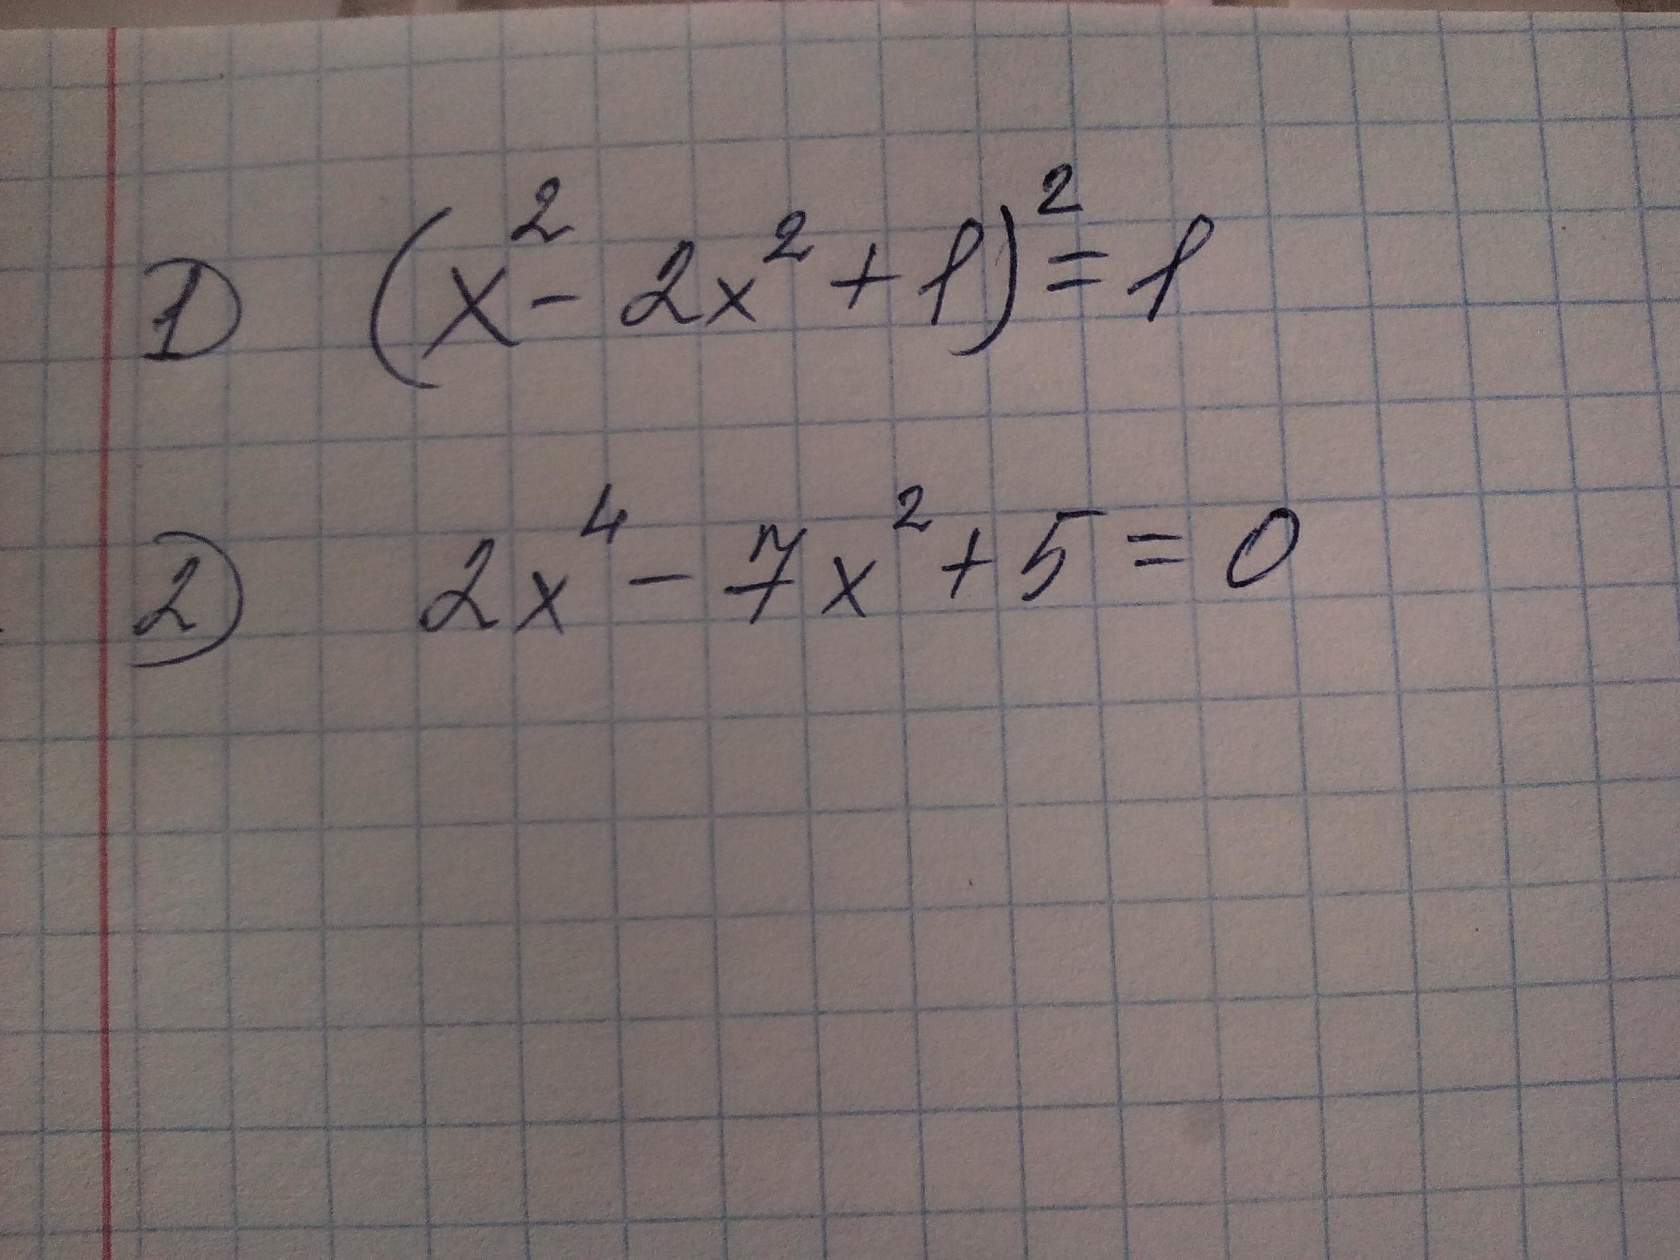 1) (x² - 2x² + 1)² = 1
2) 2x⁴ - 7x² + 5 = 0